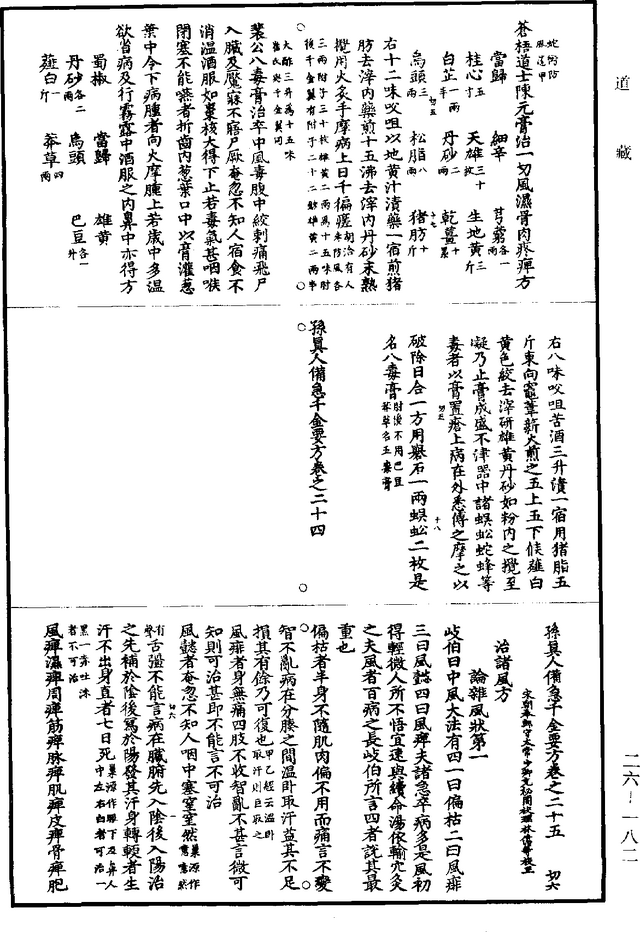 道藏
蛇銜防
風蓬甲
蒼梧道士陳元膏治一切風濕骨肉疼痺方
當歸 細辛 芎藭各一兩
桂心五寸 天雄三十枚 生地黃三斤
白芷一兩 丹砂二兩 乾薑十累
烏頭三兩 松脂八兩 猪肪十斤
右十二味㕮咀以地黃汁漬藥一宿煎猪
肪去滓内藥煎十五沸去滓内丹砂末熟
攪用火炙手摩病上日千徧瘥
裴公八毒膏治卒中風毒腹中絞刺痛飛尸
入臟及魘寐不寤尸厥奄忽不知人宿食不
消温酒服如棗核大得下止若毒氣甚咽喉
閉塞不能嚥者折齒内葱葉口中以膏灌葱
葉中令下病腫者向火摩腫上若歲中多温
欲省病及行霧露中酒服之内鼻中亦得方
蜀椒 當歸 雄黃
丹砂各二兩 烏頭 巴豆各一升
薤白一斤 莽草四兩
右八味㕮咀苦酒三升漬一宿用猪脂五
斤東向竈葦薪火煎之五上五下候薤白
黃色絞去滓研雄黃丹砂如粉内之攪至
凝乃止膏成盛不津器中諸蜈蚣蛇蜂等
毒者以膏置瘡上病在外悉傅之摩之以
破除日合一方用礜石一兩蜈蚣二枚是
名八毒膏肘後不用巴豆莽草名五毒膏
孫真人備急千金要方卷之二十四
孫真人備急千金要方卷之二十五 切六
治諸風方
論雜風狀第一
岐伯曰中風大法有四一曰偏枯二曰風痱
三曰風懿四曰風痺夫諸急卒病多是風初
得輕微人所不悟宜速與續命湯依輸穴灸
之夫風者百病之長岐伯所言四者說其最
重也
偏枯者半身不隨肌肉偏不用而痛言不變
智不亂病在分腠之間温卧取汗益其不足
損其有餘乃可復也甲乙經云温卧取汗則巨取之
風痱者身無痛四肢不收智亂不甚言微可
知則可治甚即不能言不可治
風懿者奄忽不知人咽中塞窒窒然巢源作噫噫然有聲
舌强不能言病在臟腑先入陰後入陽治
之先補於陰後瀉於陽發其汗身轉軟者生
汗不出身直者七日死
風痺濕痺周痺筋痺脉痺肌痺皮痺骨痺胞
二六—一八二